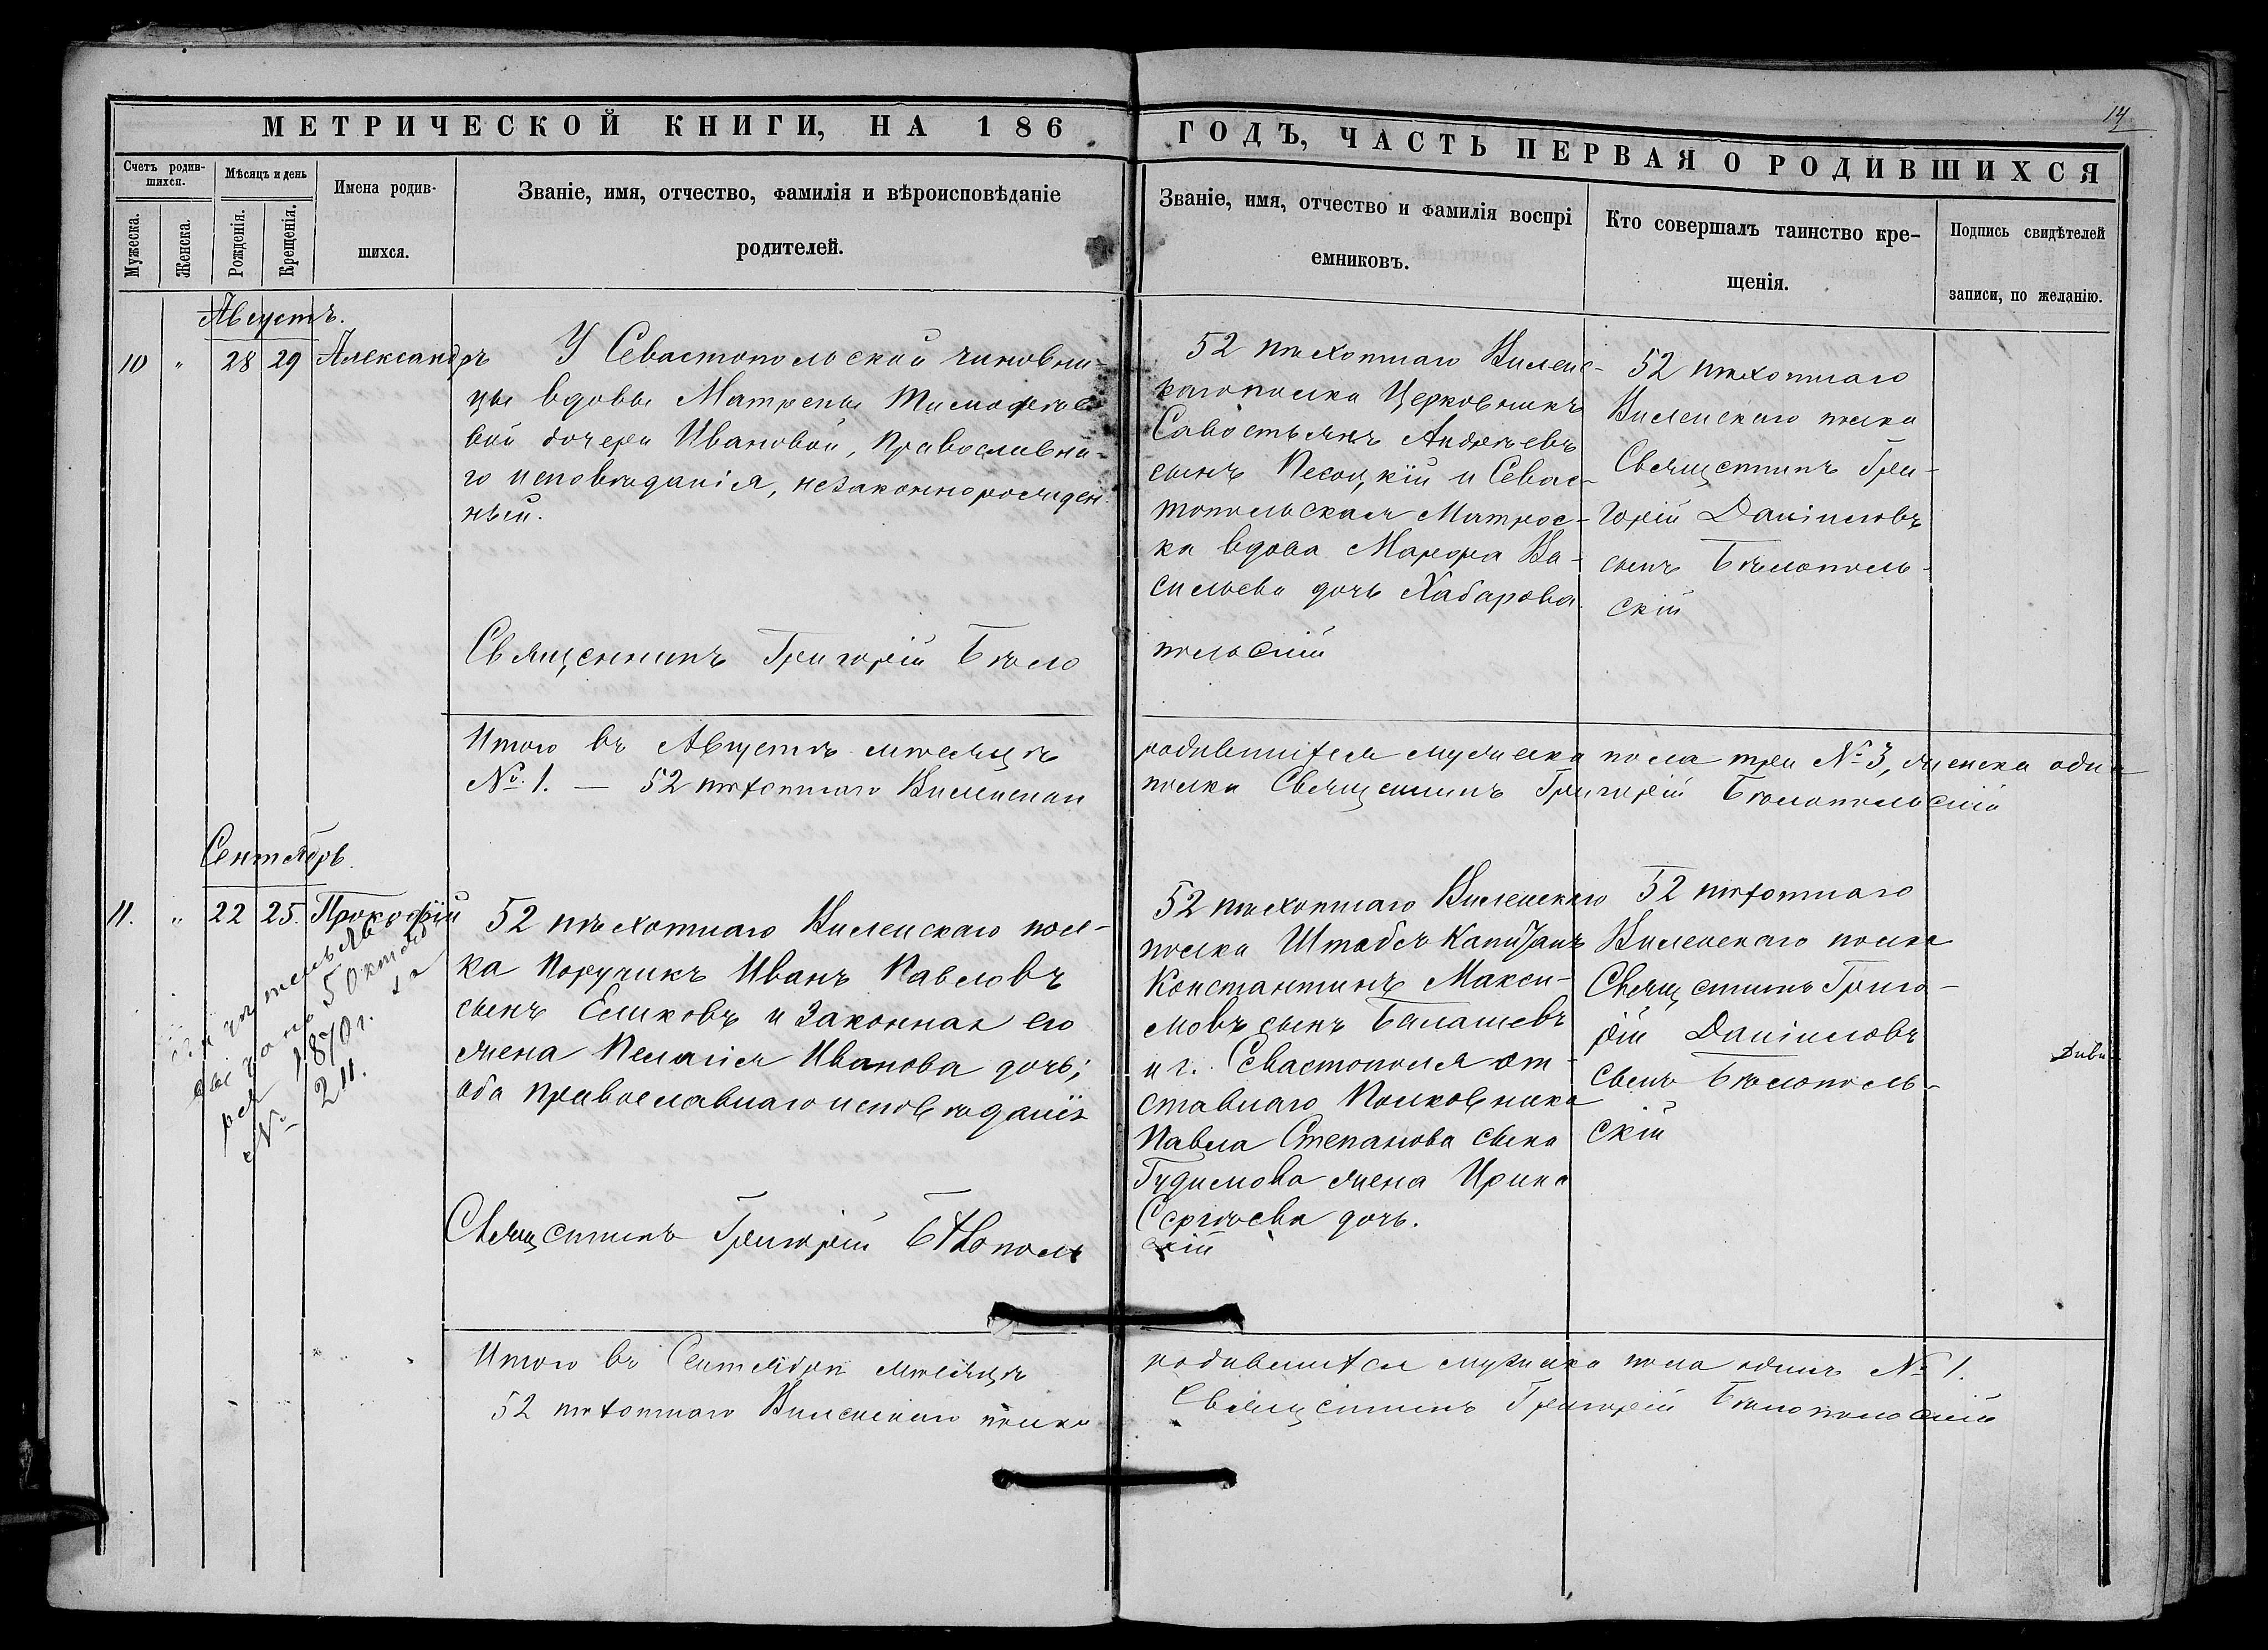 14
МЕТРИЧЕСКОЙ КНИГИ, НА 186
ГОДЪ, ЧАСТЬ ПЕРВАЯ О РОДИВШИХСЯ
Счетъ родив-
шихся.
Мужеска.
Женска.
Мѣсяцъ и день
Рожденія.
Крещенія.
Имена родив-
шихся.
Званіе, имя, отчество, фамилія и вѣроисповѣданіе
родителей.
Званіе, имя, отчество и фамилія воспрі
емниковъ.
Кто совершалъ таинство кре-
щенія.
Подпись свидѣтелей
записи, по желанію.
Августъ.
10 " 28 29 Александръ
У Севастопольской чиновни-
цы вдовы Матрены Тимофѣе
вой дочери Ивановой, Православна-
го исповѣданія, незаконнорожден
ный.
Священникъ Григорій Бѣло
52 пѣхотнаго Виленс-
каго полка Церковникъ
Савостьянъ Андреевъ
сынъ Песоцкій и Севас-
топольская Матрос-
ка вдова Марфа Ва-
сильева дочь Хабарова
польскій
52 пѣхотнаго
Виленскаго полка
Священникъ Гри-
горій Даніиловъ
сынъ Бѣлополь-
скій
Итого въ Августѣ мѣсяцѣ
родившихся мужеска пола три № 3, женска одна
№ 1. — 52 пѣхотнаго Виленскаго
полка Священникъ Григорій Бѣлопольскій
Сентябрь.
11. " 22 25. Прокофій
выдано 5 Октяб
ря 1870 г.
№ 211.
52 пѣхотнаго Виленскаго пол-
ка Поручикъ Иванъ Павловъ
сынъ Еликовъ и Законная его
жена Пелагія Иванова дочь;
оба православнаго исповѣданія
Священникъ Григорій Бѣлополь
52 пѣхотнаго Виленскаго
полка Штабсъ Капитанъ
Константинъ Макси-
мовъ сынъ Балашевъ
и г. Севастополя от-
ставнаго Полковника
Павла Степанова сына
Гудимова жена Ирина
Сергѣева дочь.
скій
52 пѣхотнаго
Виленскаго полка
Священникъ Григо-
рій Даніиловъ
сынъ Бѣлополь-
скій
Итого въ Сентябрѣ мѣсяцѣ
родившихся мужеска пола одинъ № 1.
52 пѣхотнаго Виленскаго полка
Священникъ Григорій Бѣлопольскій